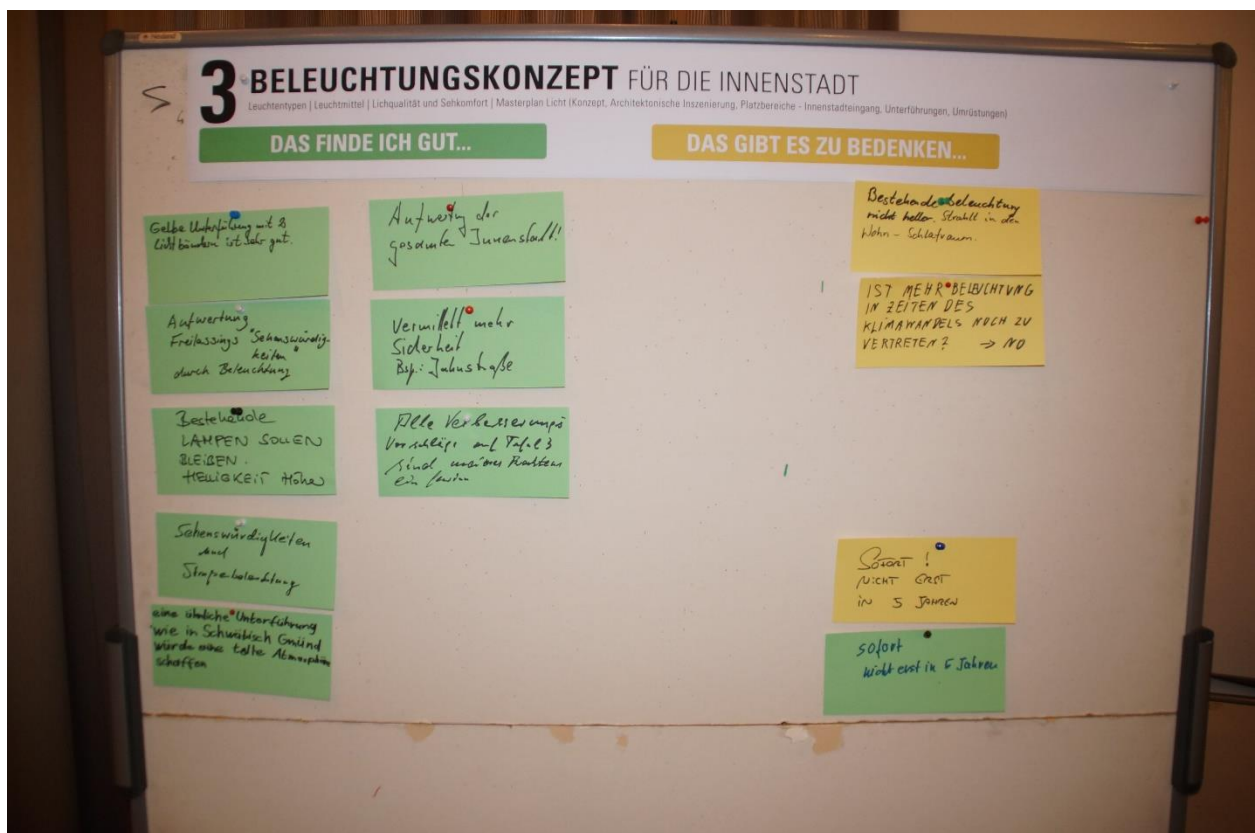 3 BELEUCHTUNGSKONZEPT FÜR DIE INNENSTADT
Leuchtentypen | Leuchtmittel | Lichqualität und Sehkomfort | Masterplan Licht (Konzept, Architektonische Inszenierung, Platzbereiche - Innenstadteingang, Unterführungen, Umrüstungen)
DAS FINDE ICH GUT...
Gelbe Unterführung mit
Lichtbändern ist sehr gut.
Aufwertung
Freilassings "Sehenswürdig-
keiten"
durch Beleuchtung
Bestehende
LAMPEN SOLLEN
BLEIBEN.
HELLIGKEIT Höher
Sehenswürdigkeiten
und
Straßenbeleuchtung
eine ähnliche Unterführung
wie in Schwäbisch Gmünd
würde eine tolle Atmosphäre
schaffen
Aufwertung der
gesamten Innenstadt!
Vermittelt mehr
Sicherheit
Bsp.: Jahnstraße
Alle Verbesserungs
Vorschläge auf Tafel 3
sind
ein Gewinn
DAS GIBT ES ZU BEDENKEN...
Bestehende Beleuchtung
nicht heller. Strahlt in den
Wohn - Schlafraum.
IST MEHR BELEUCHTUNG
IN ZEITEN DES
KLIMAWANDELS NOCH ZU
VERTRETEN? → NO
SOFORT !
NICHT ERST
IN 5 JAHREN
sofort
nicht erst in 5 Jahren